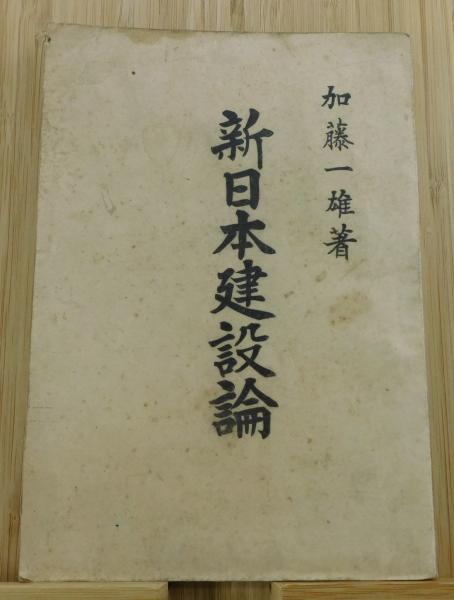 加藤一雄著
新日本建設論